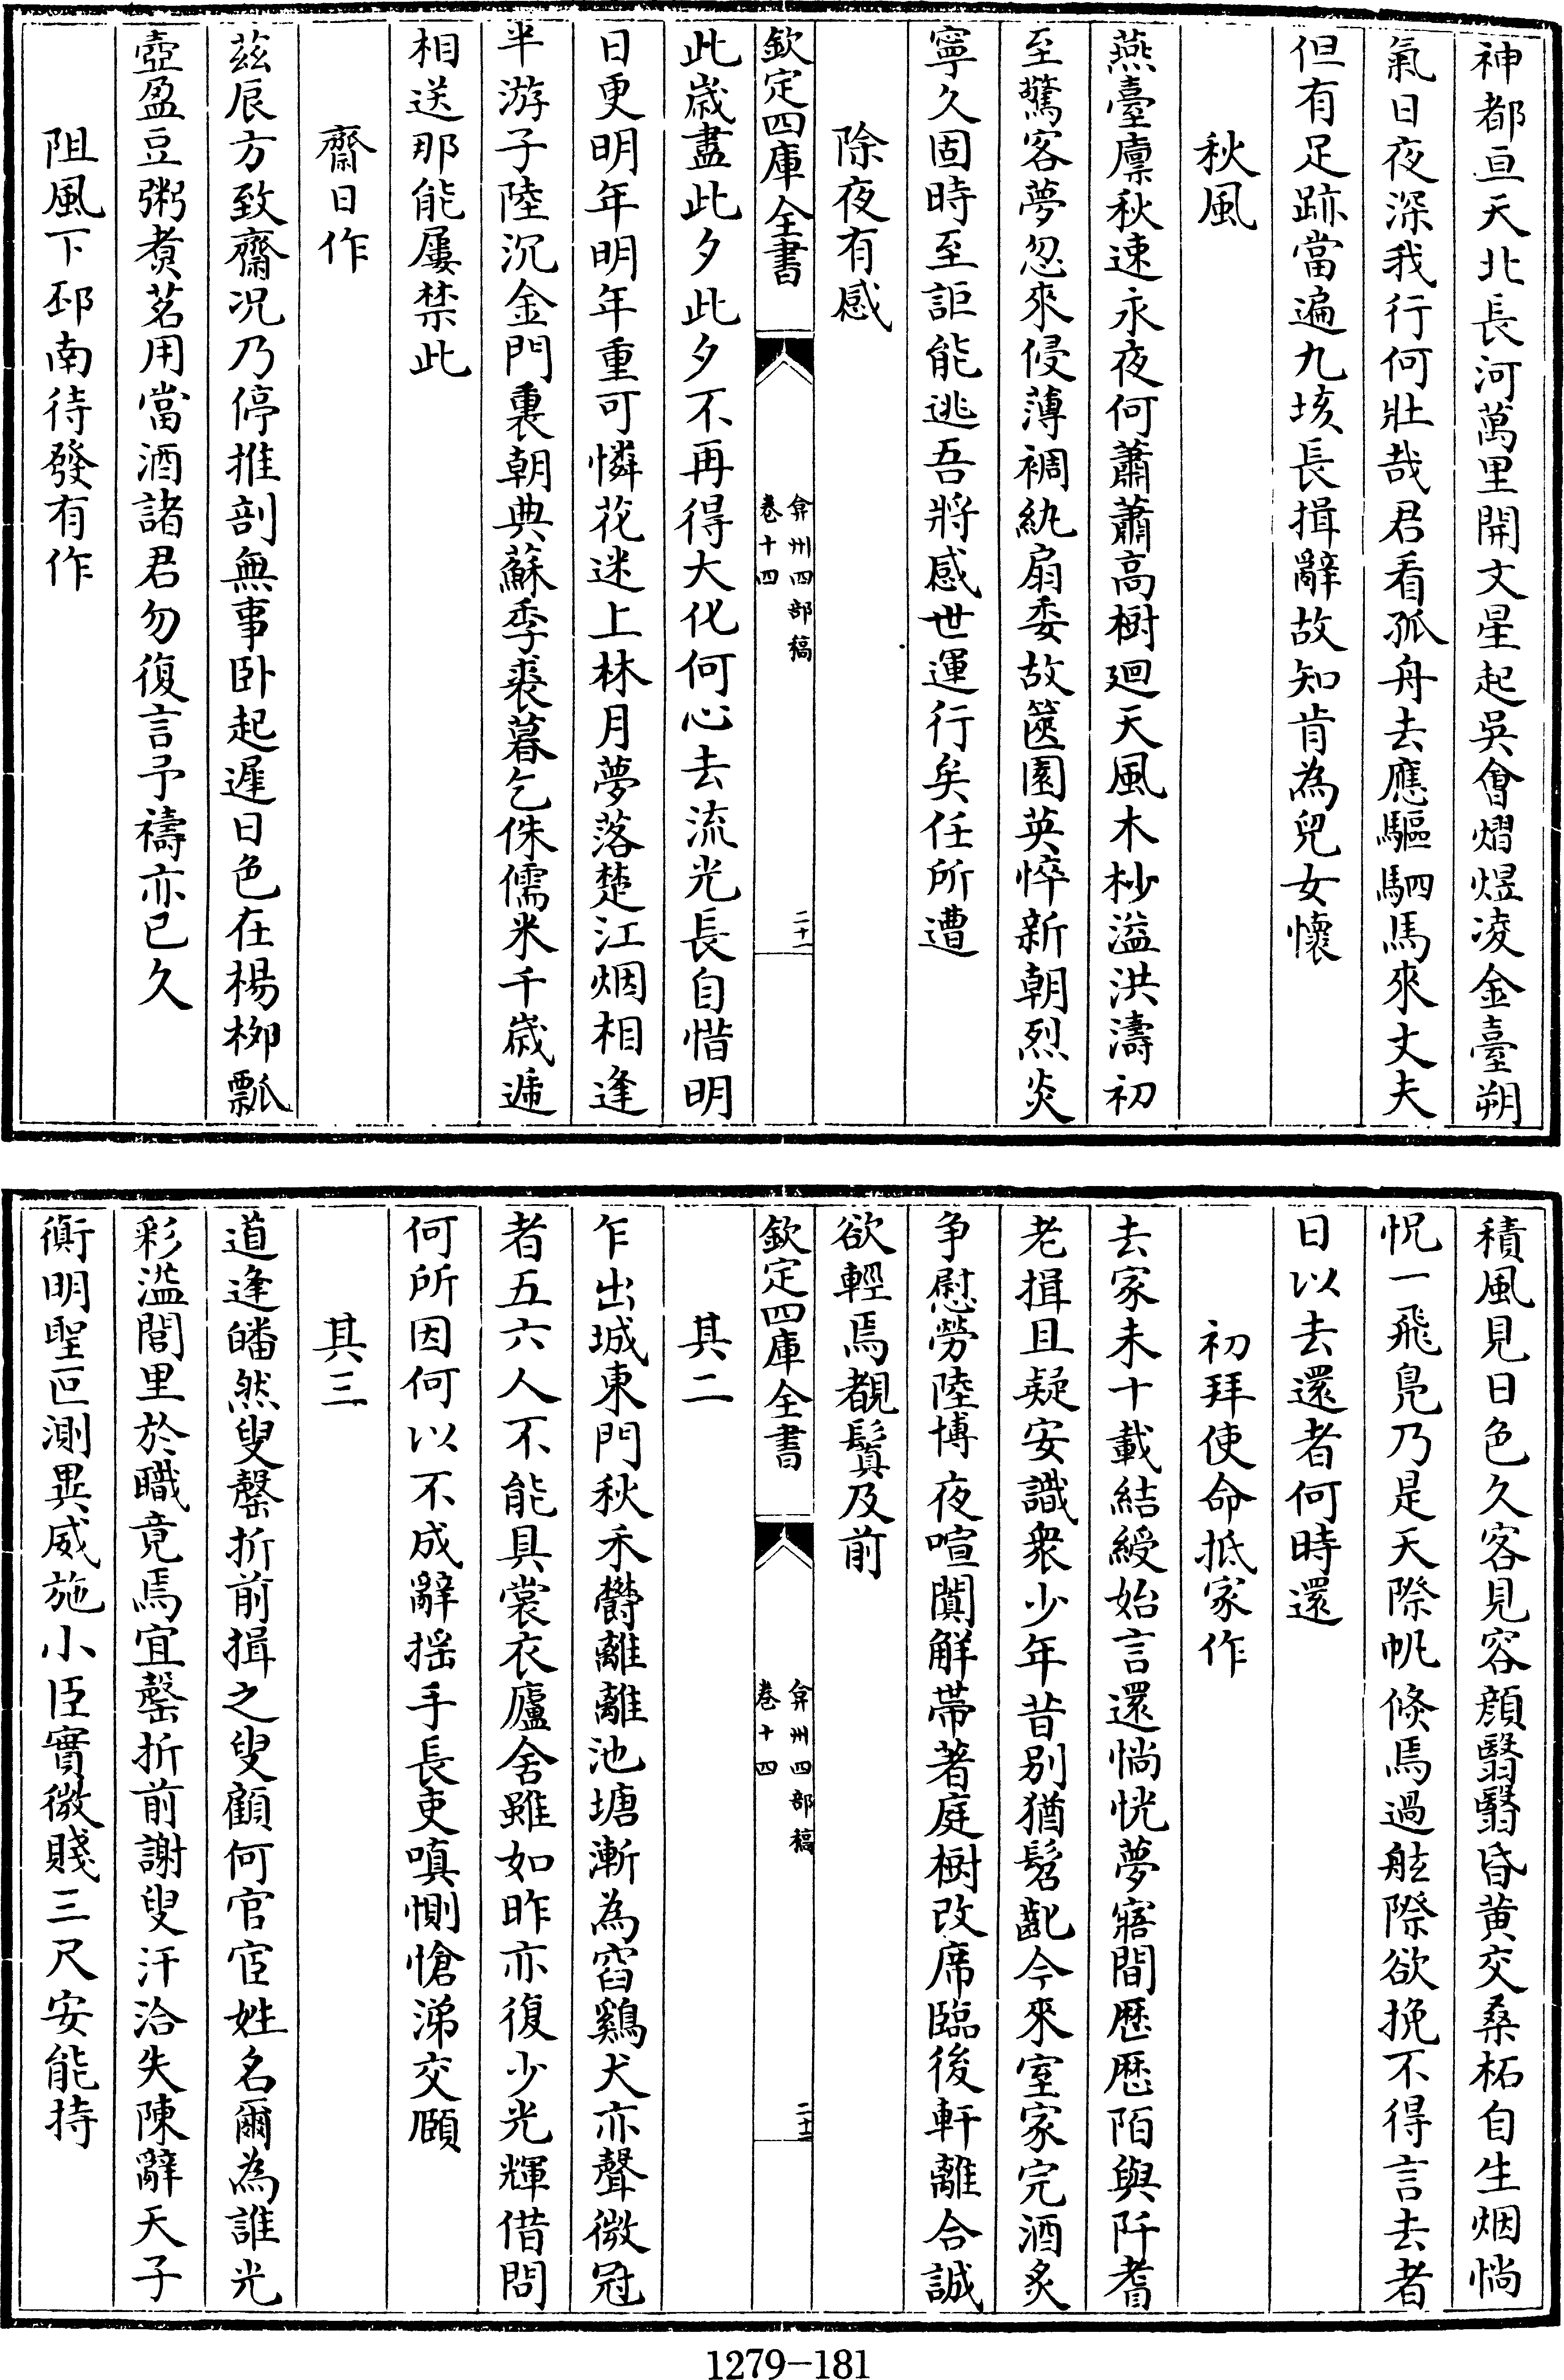 神都亘天北長河萬里開文星起吳會熠煜凌金臺朔
氣日夜深我行何壯哉君看孤舟去應驅駟馬來丈夫
但有足跡當遍九垓長揖辭故知肯為兒女懷
秋風
燕臺廪秋速永夜何蕭蕭高樹廻天風木杪溢洪濤初
至驚客夢忽來侵薄裯紈扇委故篋園英悴新朝烈炎
寧久固時至詎能逃吾將感世運行矣任所遭
除夜有感
欽定四庫全書
弇州四部稿
卷十四
二十一
此歳盡此夕此夕不再得大化何心去流光長自惜明
日更明年明年重可憐花迷上林月夢落楚江烟相逢
半游子陸沉金門裏朝典蘇季裘暮乞侏儒米千歳遞
相送那能屢禁此
齋日作
茲辰方致齋况乃停推剖無事卧起遲日色在楊栁瓢
壺盈豆粥煑茗用當酒諸君勿復言予禱亦已久
阻風下邳南待發有作
積風見日色久客見容顔翳翳昏黄交桑柘自生烟惝
怳一飛鳧乃是天際帆倐焉過舷際欲挽不得言去者
日以去還者何時還
初拜使命抵家作
去家未十載結綬始言還惝恍夢寤間歴歴陌與阡耆
老揖且疑安識衆少年昔别猶髫齔今來室家完酒炙
争慰勞陸博夜喧闐解帶著庭樹改席臨後軒離合誠
欲輕焉覩鬒及前
欽定四庫全書
弇州四部稿
卷十四
二十二
其二
乍出城東門秋禾鬱離離池塘漸為窞鷄犬亦聲微冠
者五六人不能具裳衣廬舍雖如昨亦復少光輝借問
何所因何以不成辭揺手長吏嗔惻愴涕交頤
其三
道逢皤然叟罄折前揖之叟顧何官宦姓名爾為誰光
彩溢閭里於職竟焉宜罄折前謝叟汗洽失陳辭天子
衡明聖叵測異威施小臣實微賤三尺安能持
1279-181